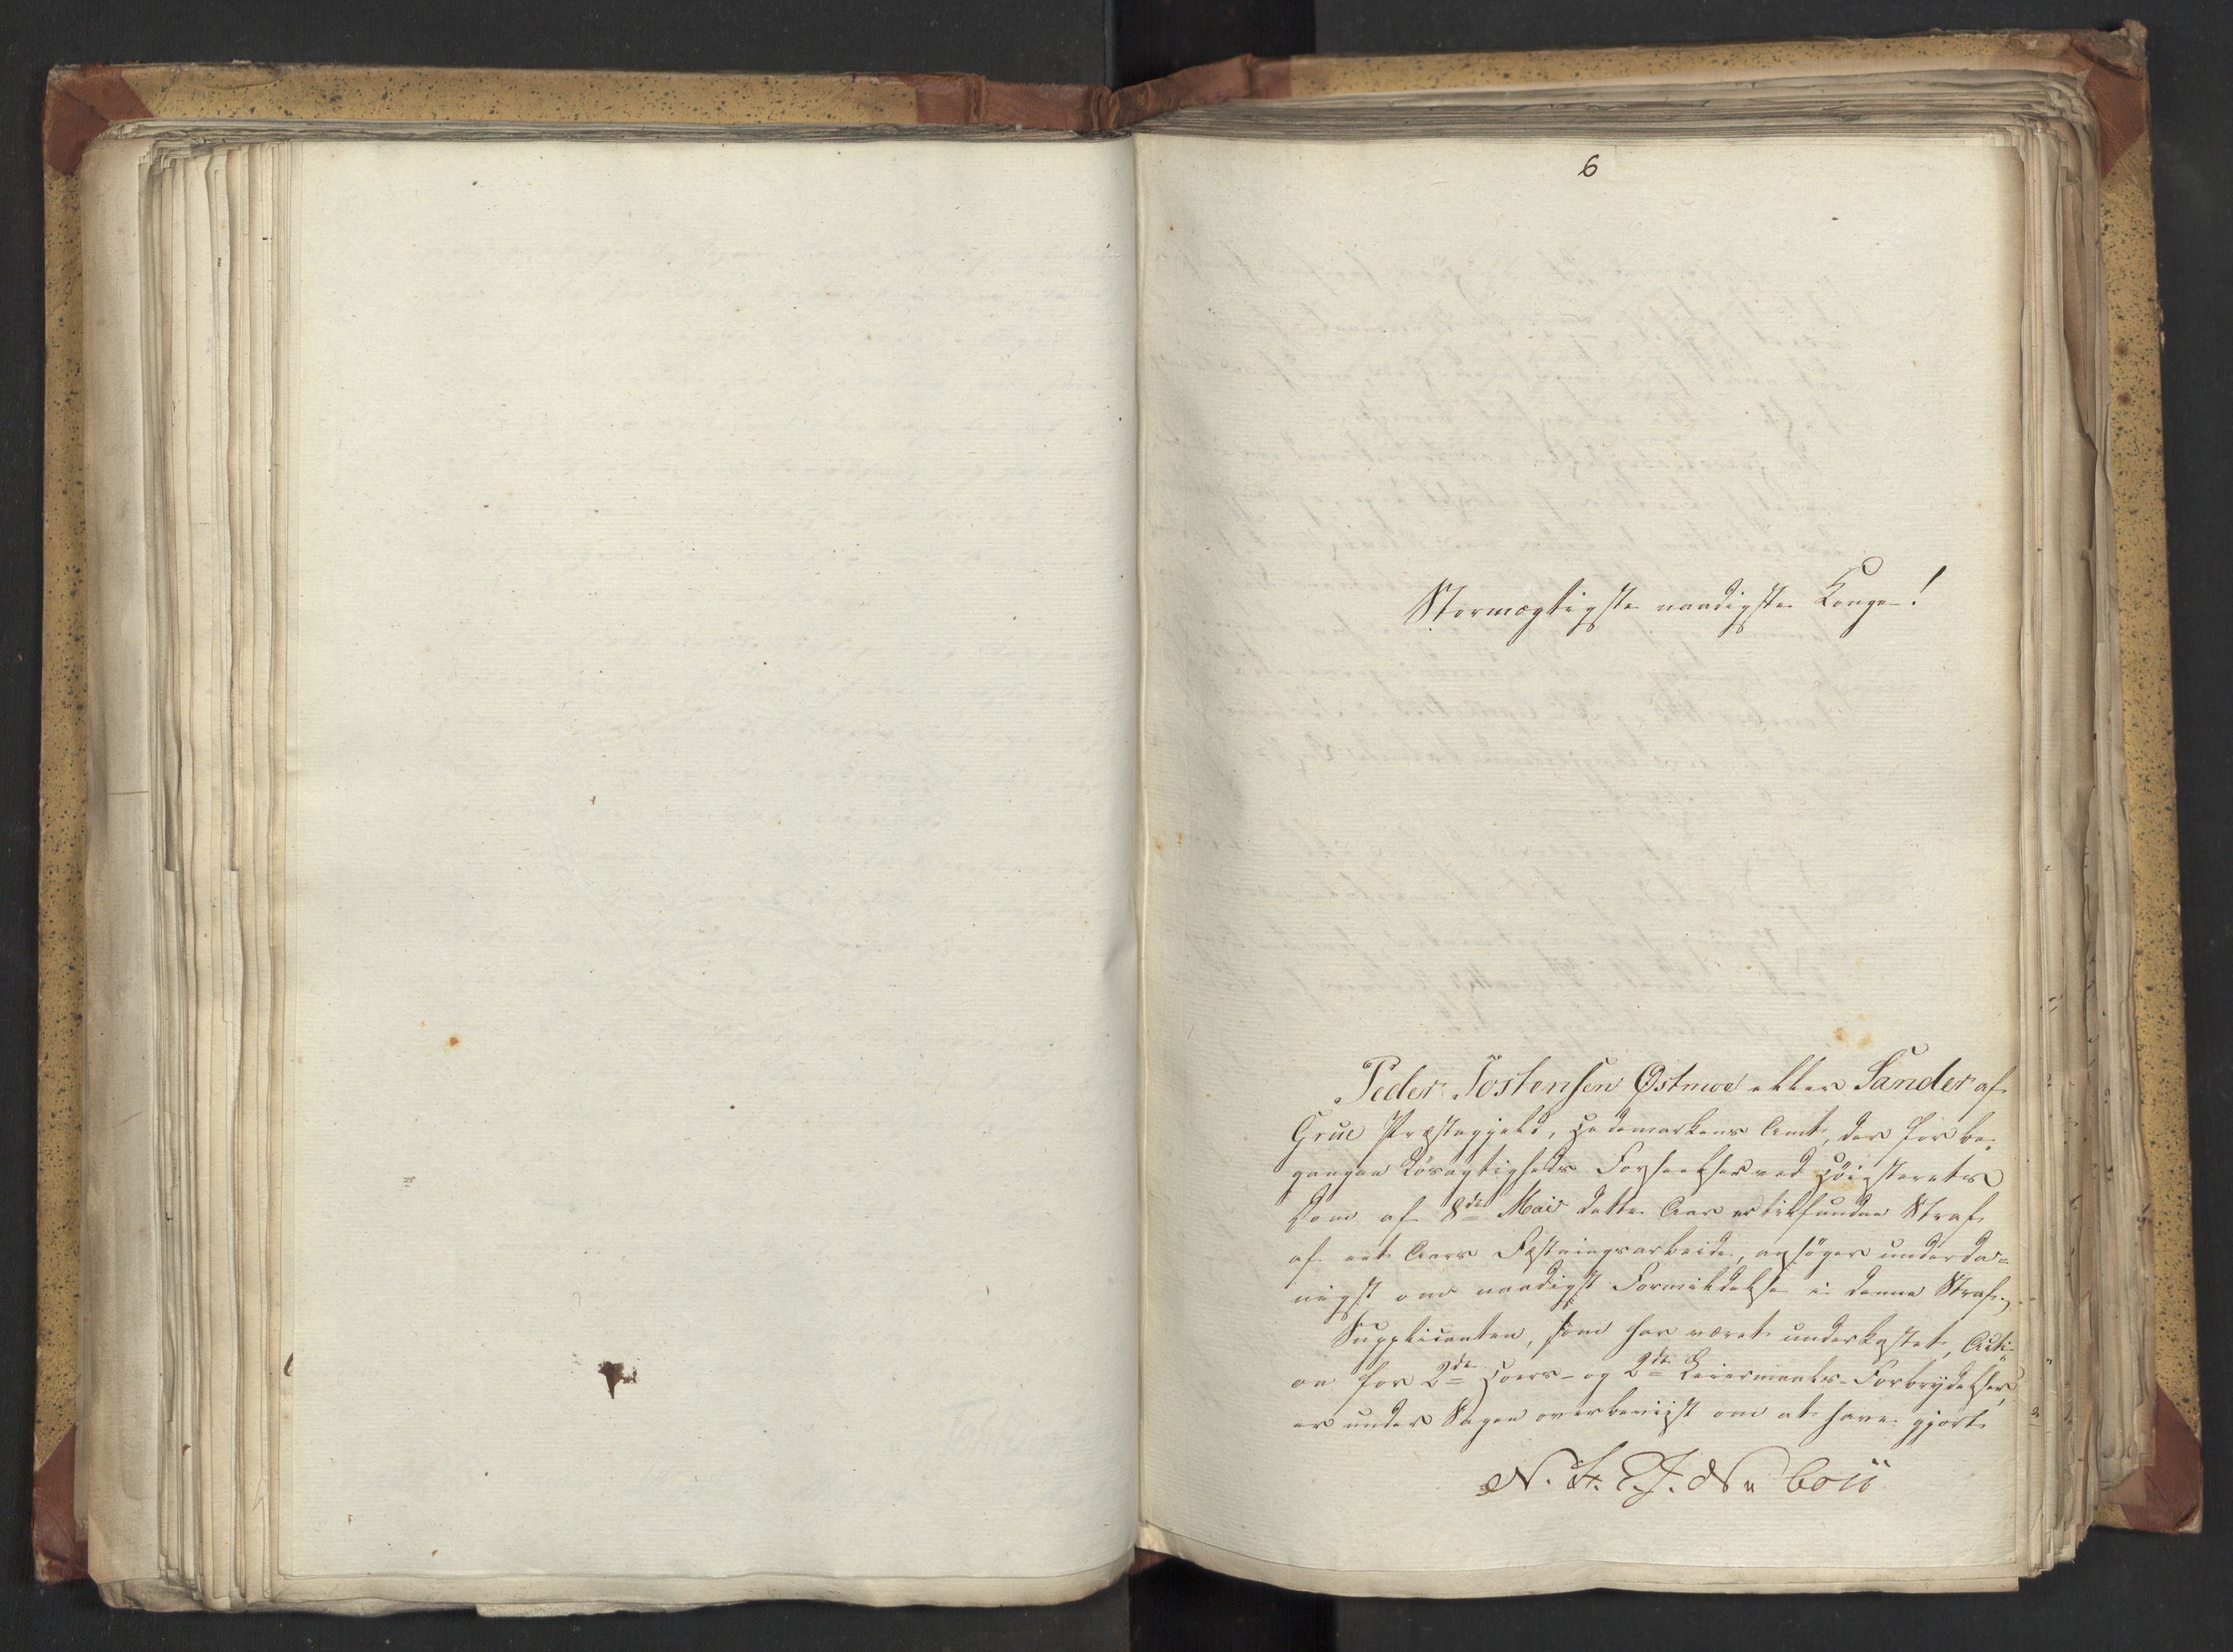 6
Stormægtigste naadigste Konge!
Peder Tostensen Østmoe eller Sander af
Grue Præstegjeld, Hedemarkens Amt, der for be-
gangen Løsagtigheds Forseelser ved Höiesterets
Dom af 8de Mai dette Aar er tilfunden Straf
af eet Aars Fæstningsarbeide, ansöger underda-
nigst om naadigst Formildelse i denne Straf.
Supplicanten, som har været underkastet Acti-
on for 2de Hoers- og 2de Leiermaals-Forbrydelser,
er under Sagen overbeviist om at have gjort